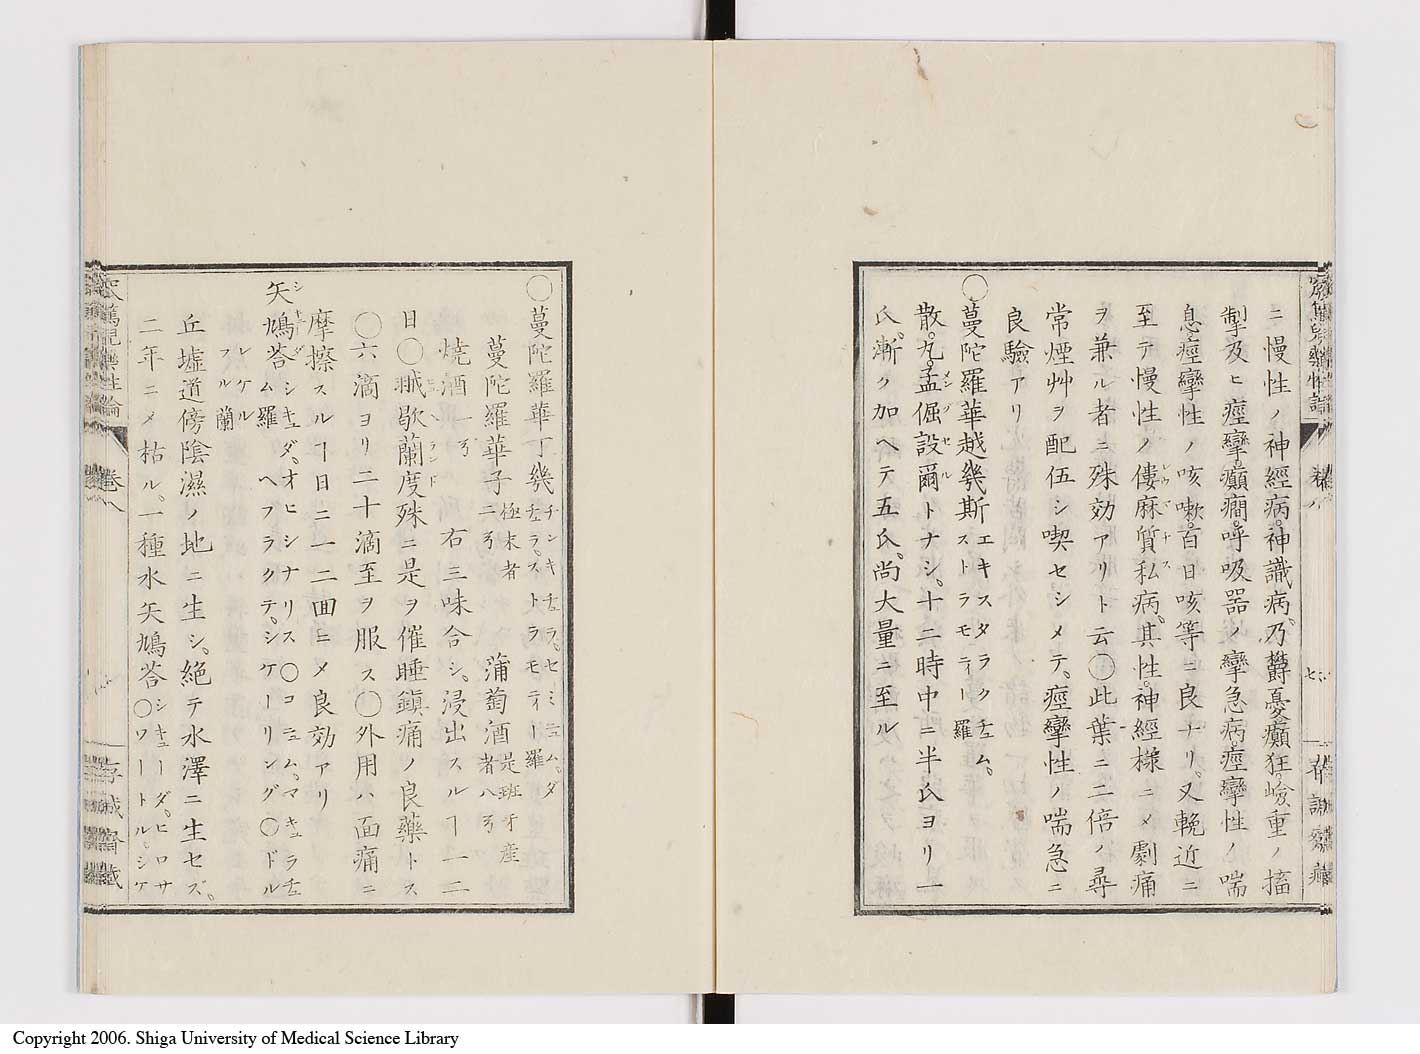 ニ慢性ノ神經病。神識病。乃欝憂癲狂。嶮重ノ搐
掣及ヒ痙攣。癲癇。呼吸器ノ攣急病。痙攣性ノ喘
息。痙攣性ノ咳嗽。百日咳等ニ良ナリ。又輓近ニ
至テ慢性ノ僂麻質私病。其性。神經様ニメ劇痛
ヲ兼ル者ニ殊効アリト云〇此葉ニ二倍ノ尋
常煙艸ヲ配伍シ喫セシメテ。痙攣性ノ喘急ニ
良驗アリ
〇蔓陀羅華越幾斯エキスタラクチュム。ストラモティー羅
散。丸。孟倔設爾トナシ。十二時中ニ半氏ヨリ一
氏。漸ク加ヘテ五氏。尚大量ニ至ル
卷八
七
〇蔓陀羅華丁幾チンキチュラ。セミニュム。ダチュラ。ストラモティー羅
蔓陀羅華子極末者二ヲ 蒲萄酒是班牙産者八ヲ
焼酒一ヲ 右三味合シ。浸出スルヿ一二
日〇繊歇蘭度殊ニ是ヲ催睡鎭痛ノ良藥トス
〇六滴ヨリ二十滴至ヲ服ス〇外用ハ面痛ニ
摩擦スルヿ日ニ一二囬ニメ良効アリ
矢鳩荅シキュダ。オヒシナリス〇コニュム。マキュラチュム羅 ヘフラクテ。シケーリング〇ドルレケルフル蘭
丘墟道傍陰濕ノ地ニ生シ。絶テ水澤ニ生セズ。
二年ニメ枯ル。一種水矢鳩荅〇シキューダ。ヒロサ〇ワートル。シケ
卷八
Copyright 2006. Shiga University of Medical Science Library